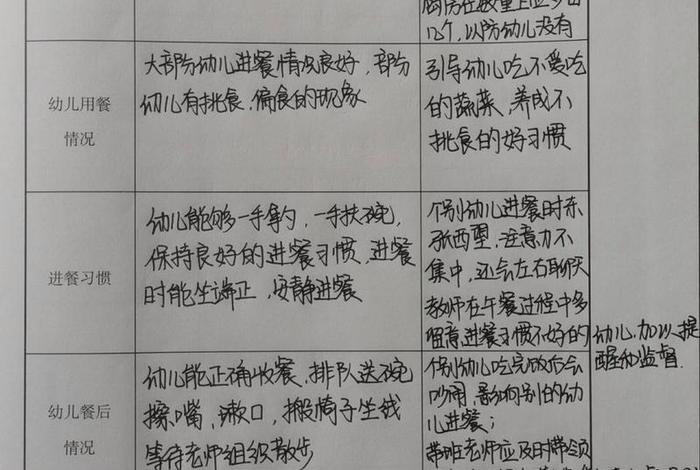 厨房在数量上应多出
几个,以防幼儿没有
幼儿用餐
情况
大部分幼儿进餐情况良好,部分
幼儿有挑食、偏食的现象
引导幼儿吃不爱吃
的蔬菜,养成不
挑食的好习惯
进餐习惯
幼儿能够一手拿勺,一手扶碗,
保持良好的进餐习惯,进餐
时能坐端正,安静进餐
个别幼儿进餐时东
张西望,注意力不
集中,还会左右聊天
教师在午餐过程中多
留意进餐习惯不好的
幼儿,加以提
醒和监督.
幼儿餐后
情况
幼儿能正确收餐、排队送碗
擦嘴,漱口,搬椅子坐线
等待老师组织散步
个别幼儿吃完饭后会
吵闹,影响别的幼
儿进餐;
带班老师应及时带领